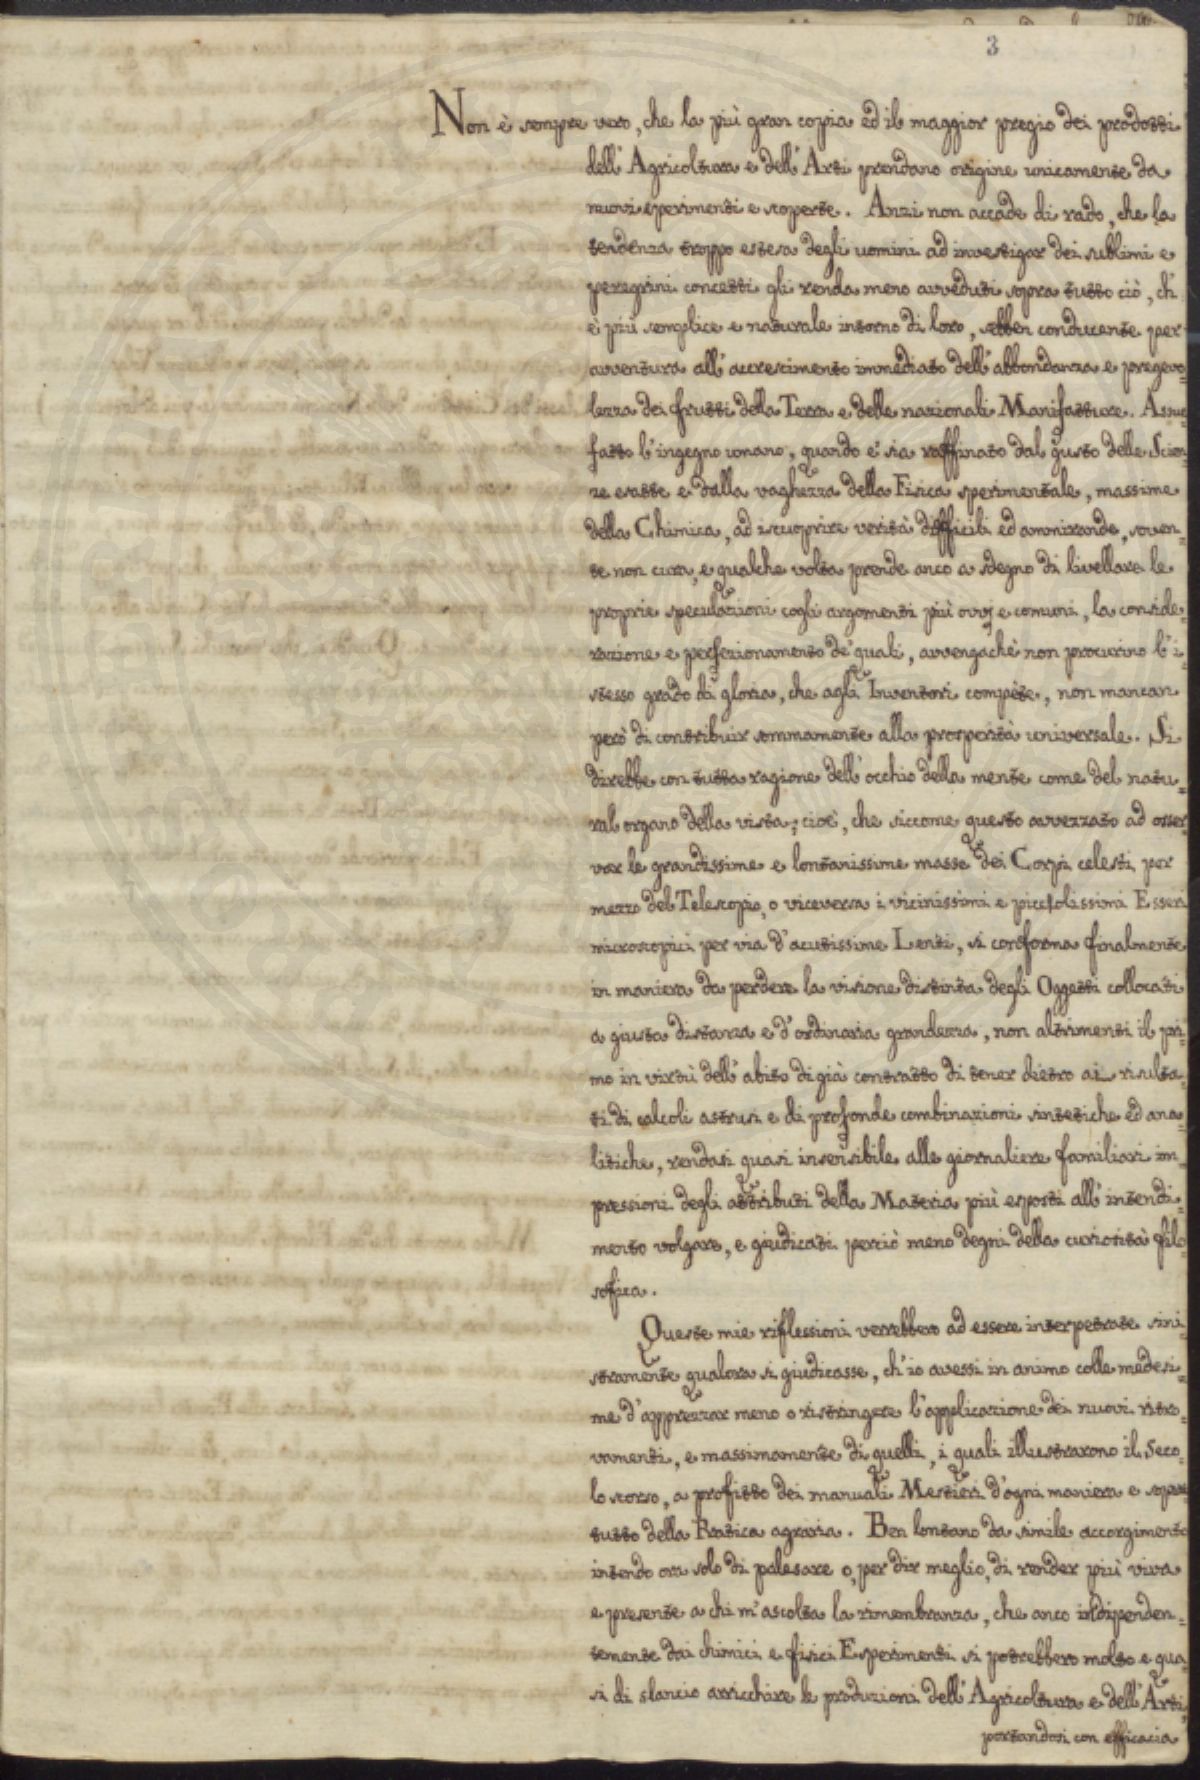 3
Non è sempre vero, che la più gran copia ed il maggior pregio dei prodotti
dell'Agricoltura e dell'Arti prendano origine unicamente da
nuovi sperimenti e scoperte. Anzi non accade di rado, che la
tendenza troppo estesa degli uomini ad investigar dei sublimi e
peregrini concetti gli renda meno avveduti sopra tutto ciò, ch'
è più semplice e naturale intorno di loro, sebben conducente per
avventura all'accrescimento immediato dell'abbondanza e pregevo=
lezza dei frutti della Terra e delle nazionali Manifatture. Assue
fatto l'ingegno umano, quando e' sia raffinato dal gusto delle Scien=
ze esatte e dalla vaghezza della Fisica sperimentale, massime
della Chimica, ad iscuoprire verità difficili ed ammirande, soven=
te non cura, e qualche volta prende anco a sdegno di livellare le
proprie speculazioni cogli argomenti più ovvj e comuni, la conside=
razione e perfezionamento de' quali, avvengachè non procurino l'i=
stesso grado di gloria, che agli Inventori compète, non mancan
però di contribuir sommamente alla prosperità universale. Si
direbbe con tutta ragione dell'occhio della mente come del natu=
ral organo della vista; cioè, che siccome questo avvezzato ad osser=
var le grandissime e lontanissime masse dei Corpi celesti per
mezzo del Telescopio, o viceversa i vicinissimi e piccolissimi Esseri
microscopici per via d'acutissime Lenti, si conforma finalmente
in maniera da perdere la visione distinta degli Oggetti collocati
a giusta distanza e d'ordinaria grandezza, non altrimenti il pri=
mo in virtù dell'abito di già contratto di tener dietro ai risulta=
ti di calcoli astrusi e di profonde combinazioni sintetiche ed ana=
litiche, rendasi quasi insensibile alle giornaliere familiari im=
pressioni degli attributi della Materia più esposti all'intendi=
mento volgare, e giudicati perciò meno degni della curiosità filo
sofica.
Queste mie riflessioni verrebbero ad essere interpetrate sini=
stramente qualora si giudicasse, ch'io avessi in animo colle medesi=
me d'apprezzar meno o ristringere l'applicazione dei nuovi ritro=
vamenti, e massimamente di quelli, i quali illustrarono il Seco=
lo scorso, a profitto dei manuali Mestieri d'ogni maniera e sopra
tutto della Pratica agraria. Ben lontano da simile accorgimento
intendo ora solo di palesare o, per dir meglio, di render più viva
e presente a chi m'ascolta la rimembranza, che anco indipenden=
temente dai chimici e fisici Esperimenti si potrebbero molto e qua=
si di slancio arricchire le produzioni dell'Agricoltura e dell'Arti,
portandosi con efficacia